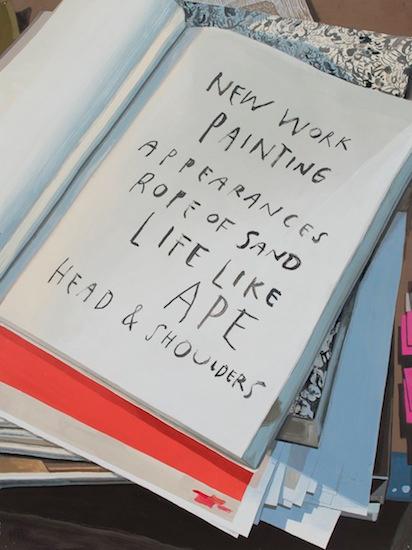 NEW WORK
PAINTING
APPEARANCES
ROPE OF SAND
LIFE LIKE
APE
HEAD & SHOULDERS